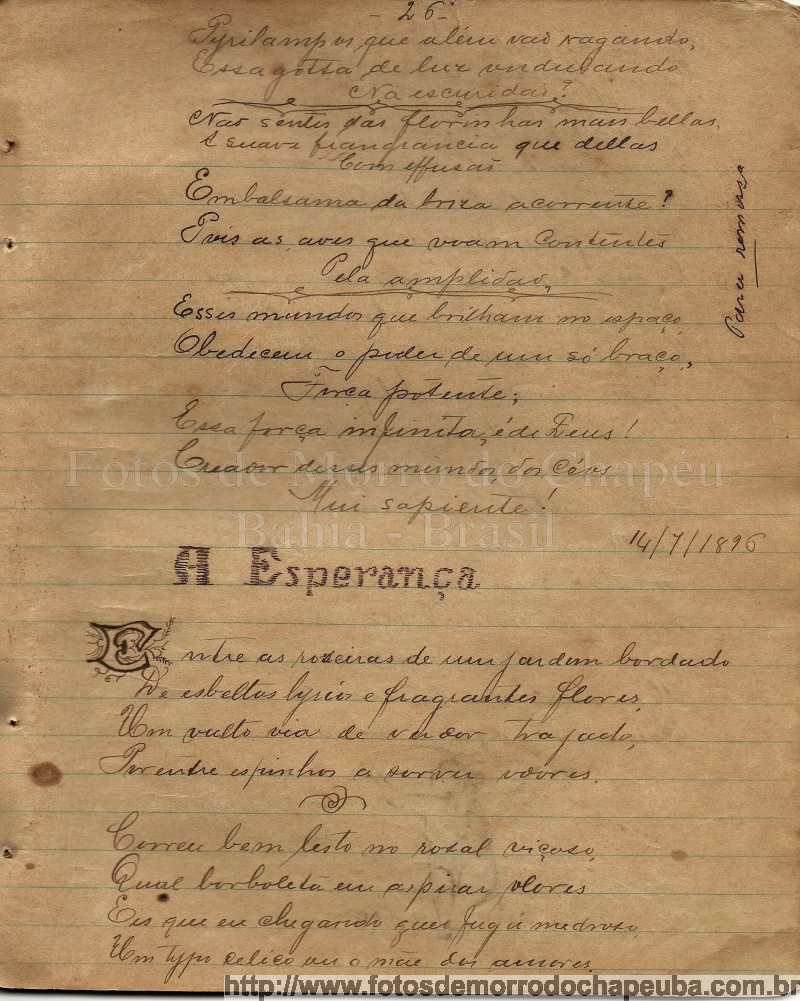 - 26 -
Pyrilampos que além vão vagando,
Essa gotta de luz undulando
Na escuridão?
Não sentes das florinhas mais bellas,
A suave frangrancia que dellas
Com effusão
Embalsama da briza a corrente?
Pois as aves que voam contentes
Pela amplidão,
Esses mundos que brilham no espaço,
Obedecem o poder de um só braço,
Força potente;
Essa força infinita, é de Deus!
Creador desses mundos, dos Céos
Mui sapiente!
14/7/1896
Para
Fotos de Morro do Chapeu
Bahia - Brasil
A Esperança
Entre as roseiras de um jardim bordado
De esbeltos lyrios e fragrantes flores,
Um vulto via de verdor trajado,
Por entre espinhos a sorver odores.
Correu bem lesto no rosal viçoso,
Qual borboleta em aspirar olores
Eis que eu chegando quer fugir medroso,
Um typo celico ou a mãe dos amores.
http://www.fotosdemorrodochapeuba.com.br